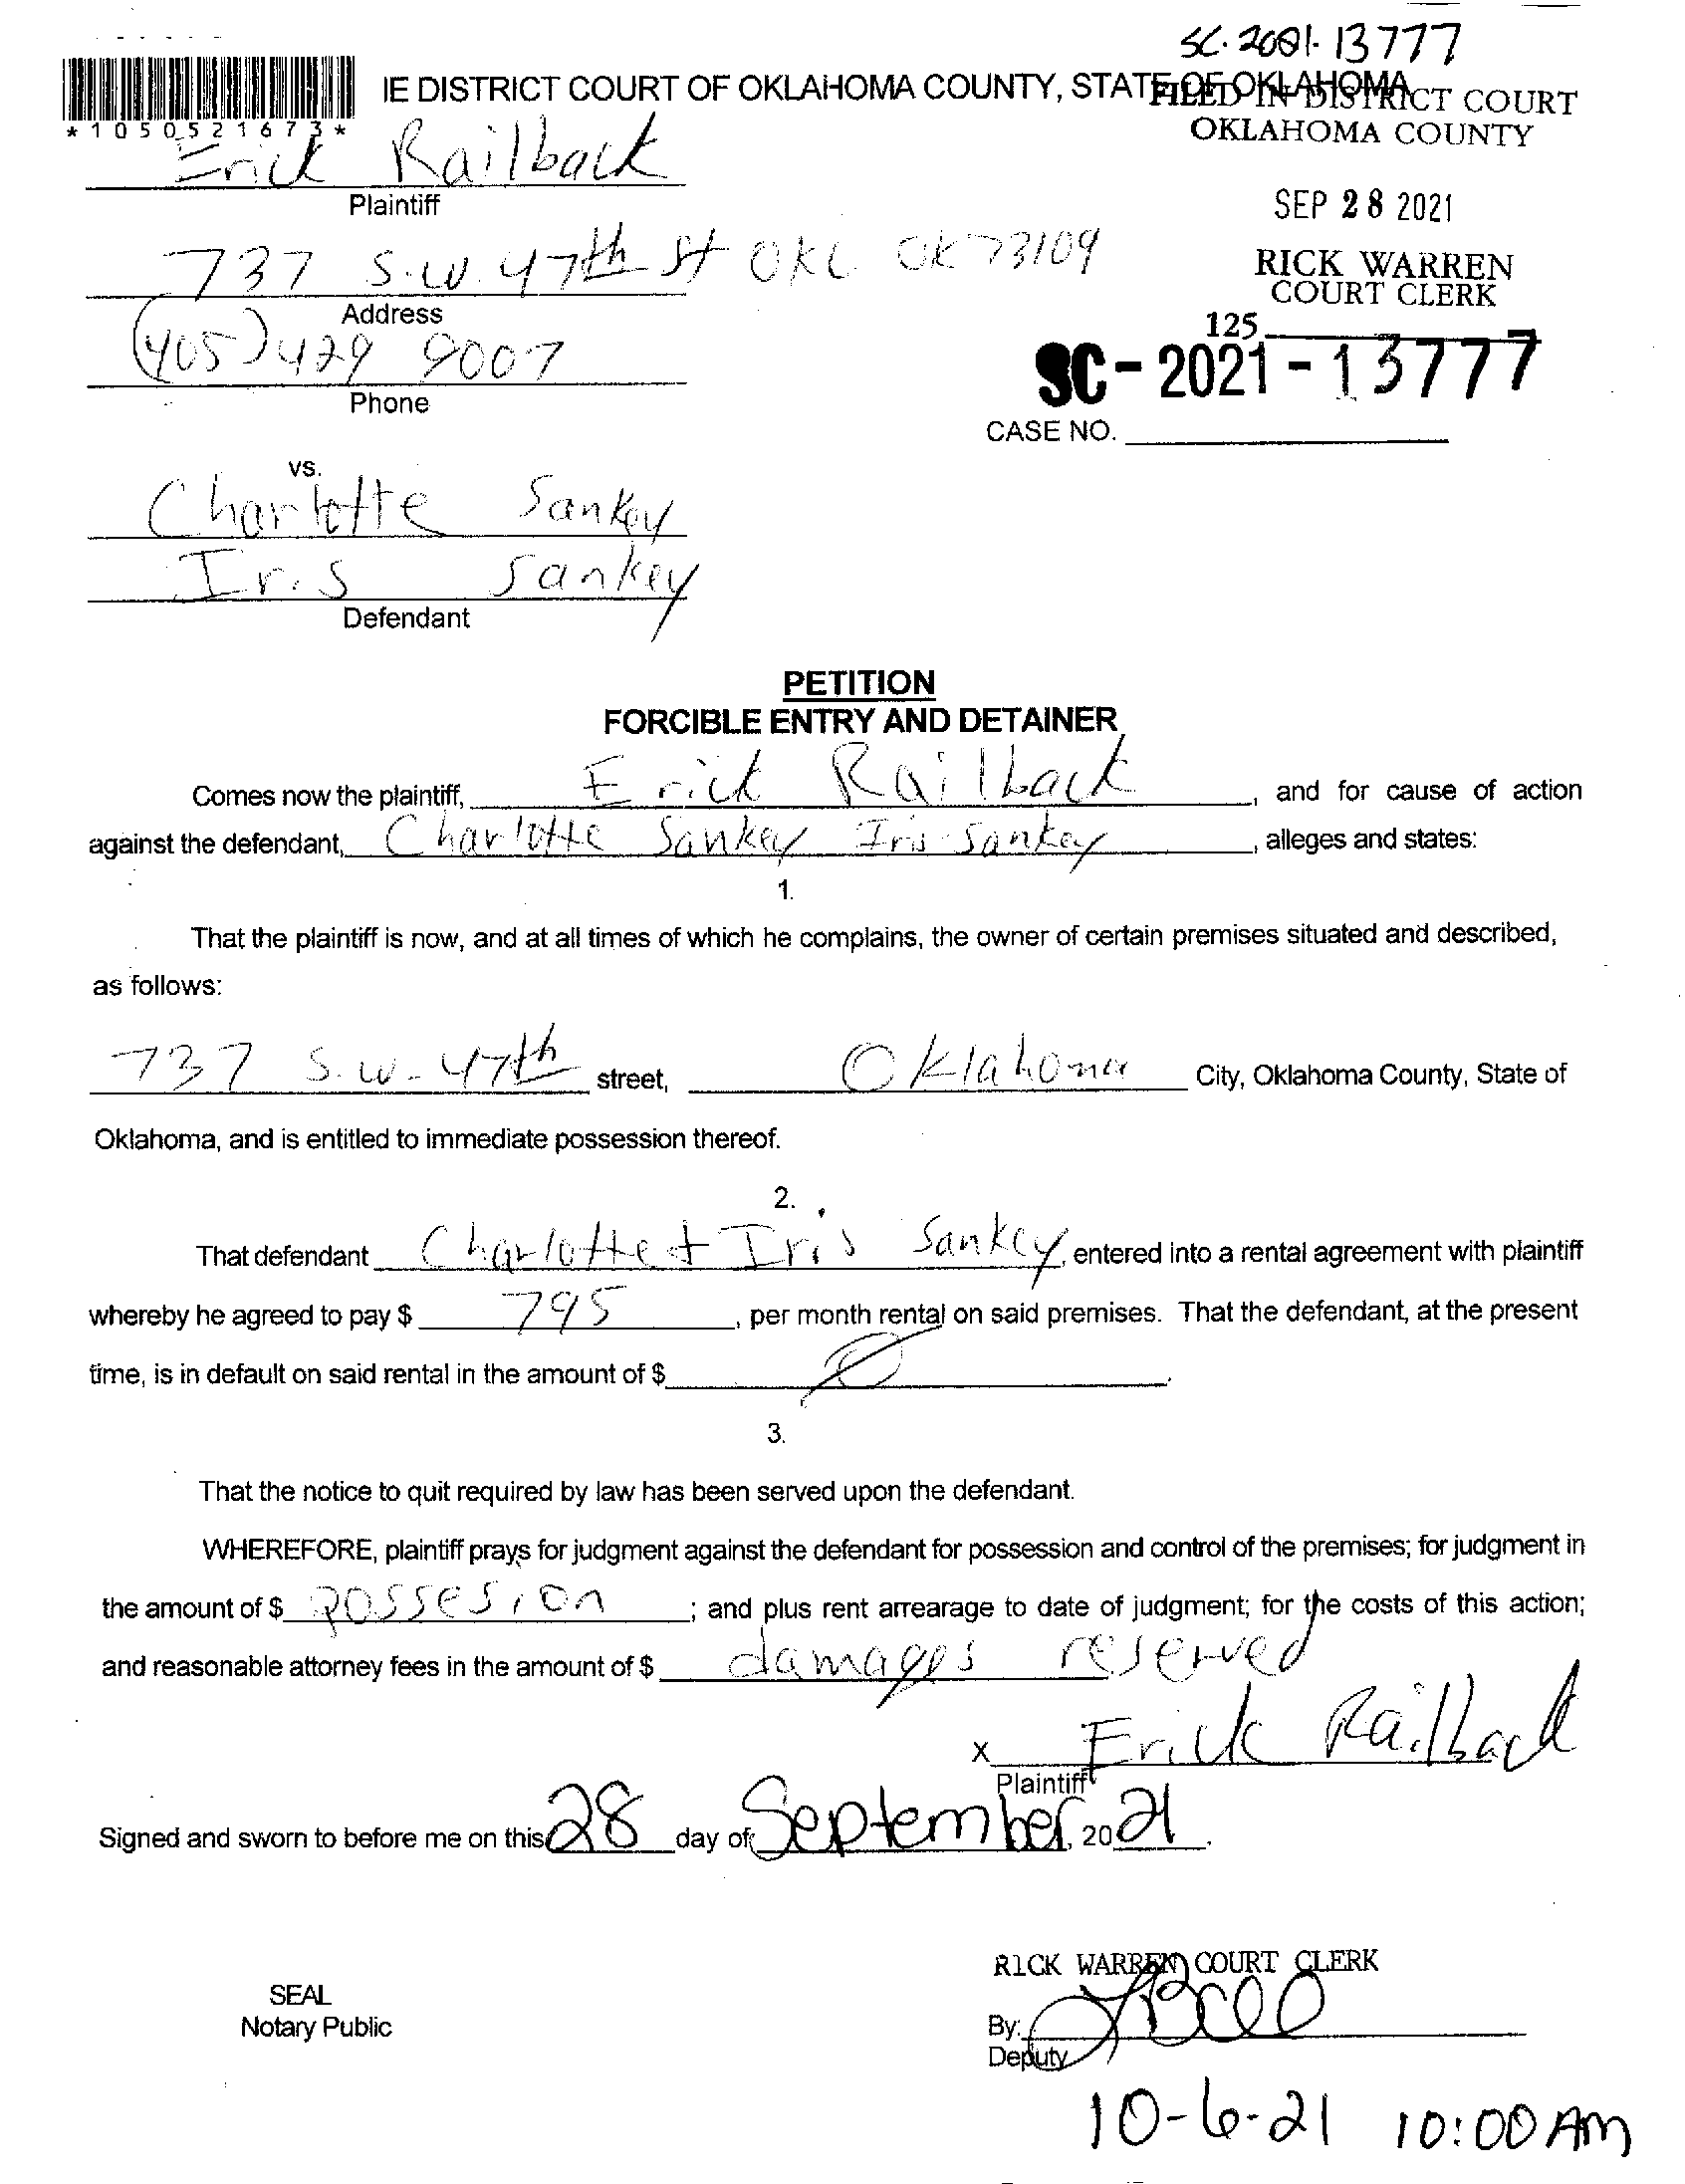 SC-2021-13777
IE DISTRICT COURT OF OKLAHOMA COUNTY, STATE OF OKLAHOMA
FILED IN DISTRICT COURT
OKLAHOMA COUNTY
*1050521673*
Erick Railback
Plaintiff
SEP 28 2021
737 S.W. 47th St OKC OK 73109
Address
RICK WARREN
COURT CLERK
125
(405) 429 9007
Phone
SC-2021-13777
CASE NO.
vs.
Charlotte Sankey
Iris Sankey
Defendant
PETITION
FORCIBLE ENTRY AND DETAINER
Comes now the plaintiff, Erick Railback, and for cause of action
against the defendant, Charlotte Sankey Iris Sankey, alleges and states:
1.
That the plaintiff is now, and at all times of which he complains, the owner of certain premises situated and described,
as follows:
737 S.W. 47th street, Oklahoma City, Oklahoma County, State of
Oklahoma, and is entitled to immediate possession thereof.
2.
That defendant Charlotte + Iris Sankey, entered into a rental agreement with plaintiff
whereby he agreed to pay $ 795, per month rental on said premises. That the defendant, at the present
time, is in default on said rental in the amount of $ Ø.
3.
That the notice to quit required by law has been served upon the defendant.
WHEREFORE, plaintiff prays for judgment against the defendant for possession and control of the premises; for judgment in
the amount of $ possesion; and plus rent arrearage to date of judgment; for the costs of this action;
and reasonable attorney fees in the amount of $ damages reserved
x Erick Railback
Plaintiff
Signed and sworn to before me on this 28 day of September, 2021.
RICK WARREN COURT CLERK
SEAL
Notary Public
By:
Deputy
10-6-21 10:00 AM